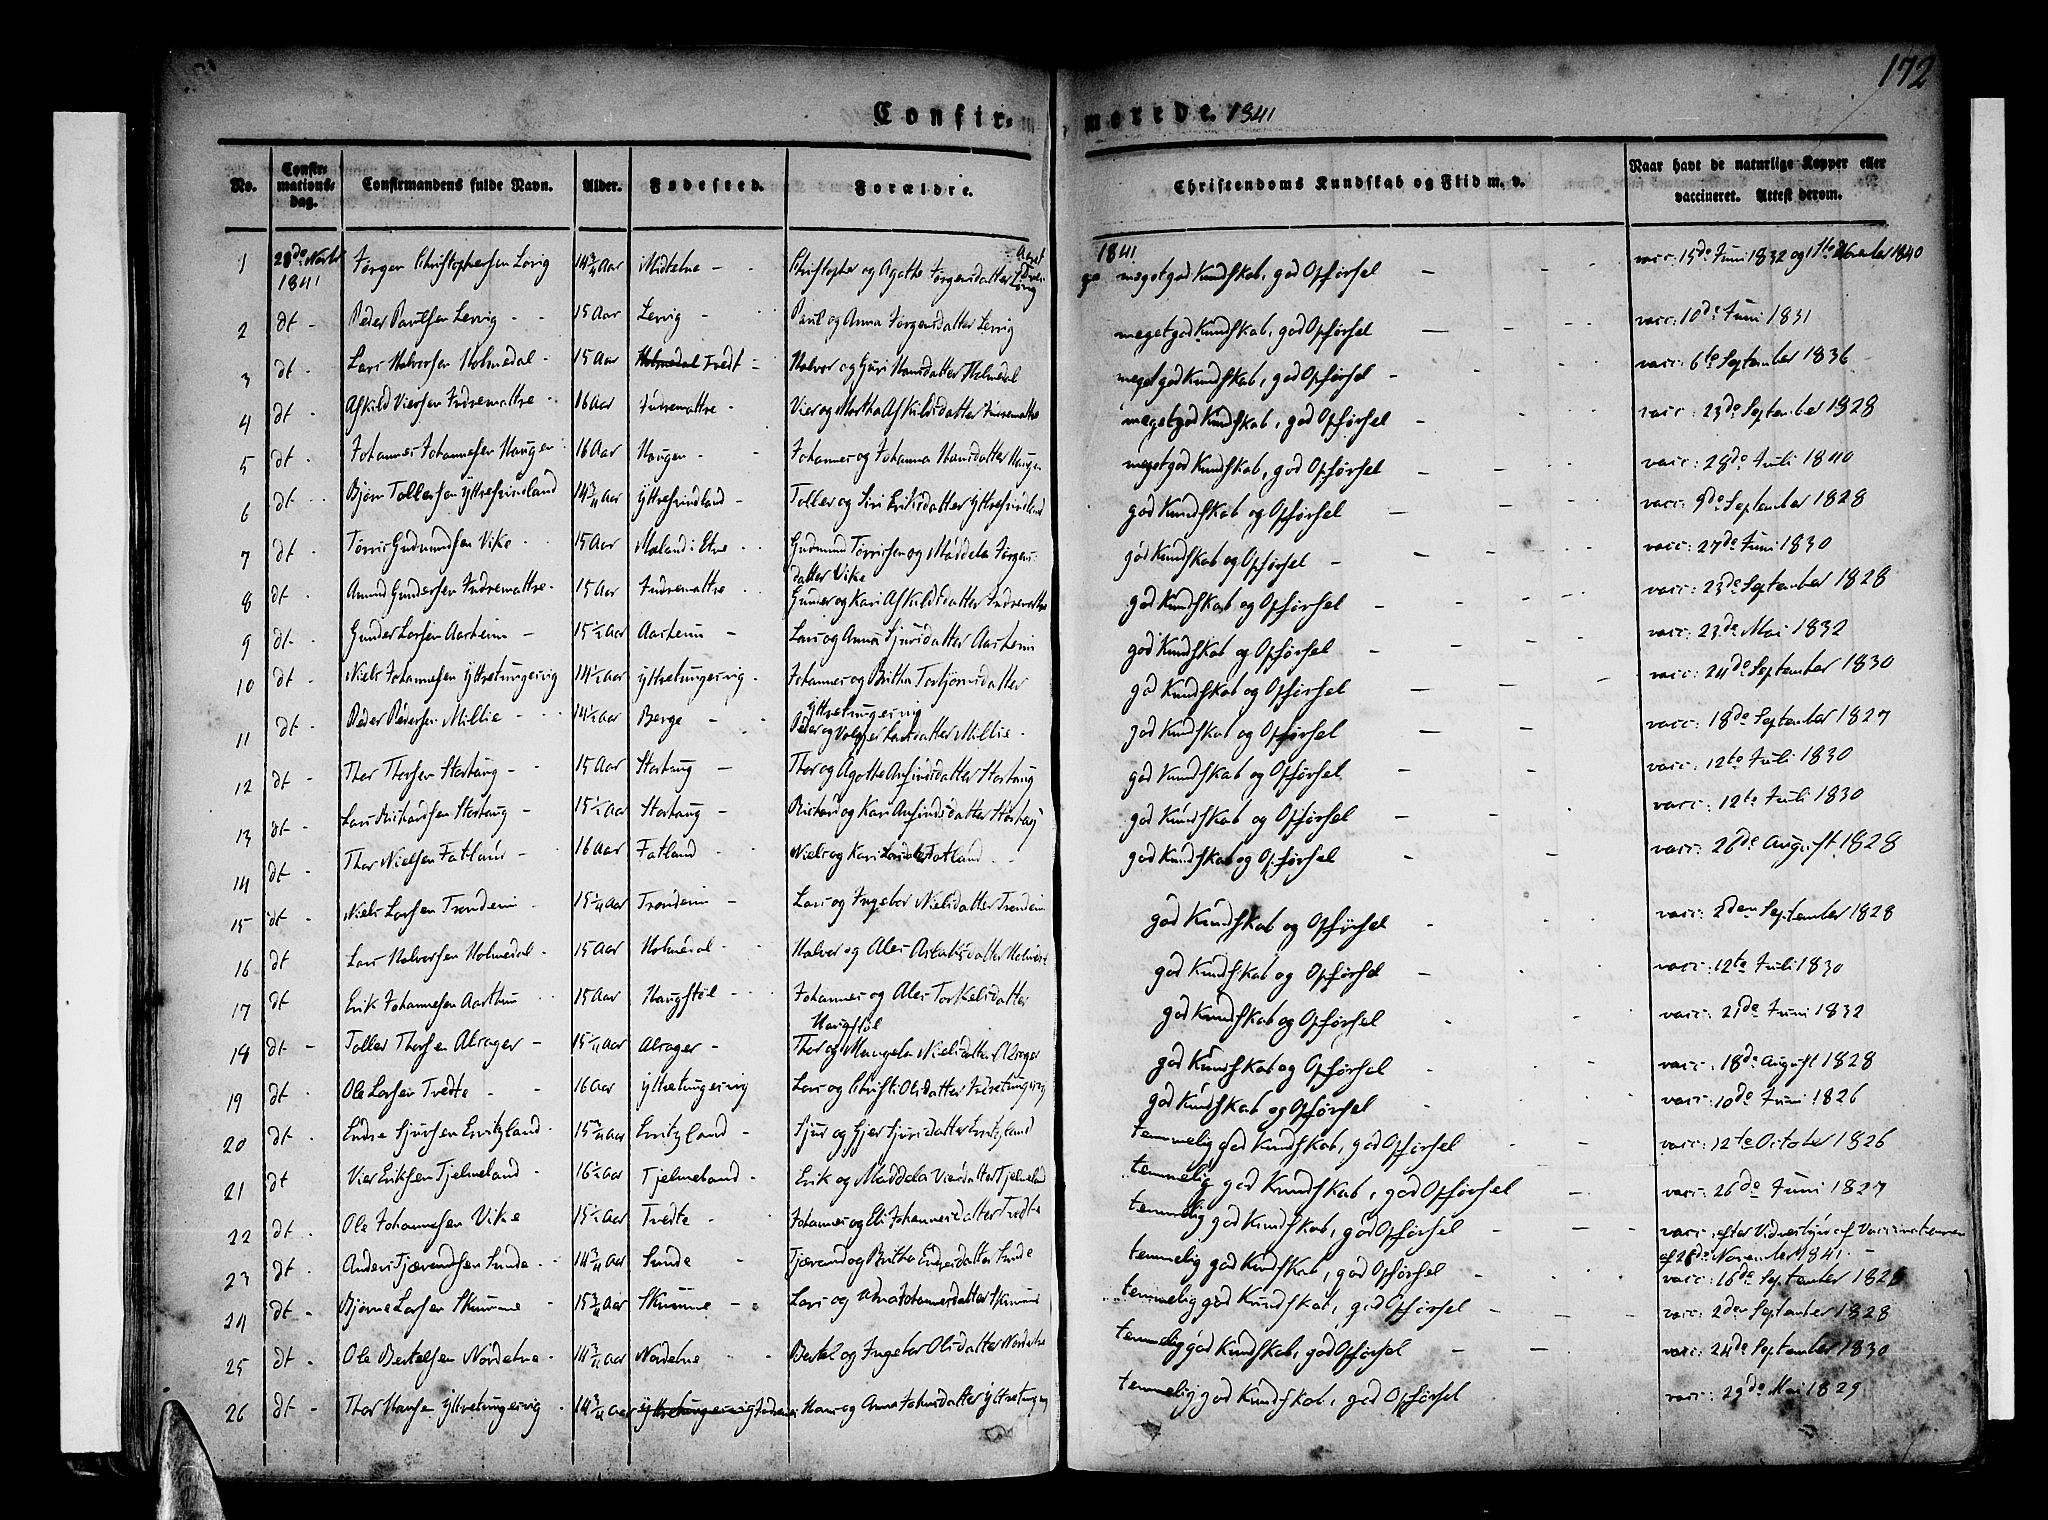 172
Confirmerede. 1841
No.
Confirmationsdag.
Confirmandens fulde Navn.
Alder.
Fødested.
Forældre.
Christendoms Kundskab og Flid m. v.
Naar havt de naturlige Kopper eller vaccineret. Attest derom.
1 28de Novbr 1841 Jørgen Christophersen 14 3/4 Aar Midtetne Christopher og Agathe Jørgensdatter 1841 meget god Kundskab, god Opførsel vacc: 15de Juni 1832 og 1ste November 1840
2 dt Peder Paulsen Lervig 15 Aar Lervig Paul og Anna Jørgensdatter Lervig meget god Kundskab, god Opførsel vacc: 10de Juni 1831
3 dt Lars Halvorsen Holmedal 15 Aar Holmedal Tvedt Halvor og Guri Hansdatter Holmedal meget god Kundskab, god Opførsel vacc: 6te September 1836
4 dt Askild Viersen Indremattre 16 Aar Indremattre Vier og Martha Askildsdatter Indremattre meget god Kundskab, god Opførsel vacc: 23de September 1828
5 dt Johannes Johannesen Haugen 16 Aar Haugen Johannes og Johanna Hansdatter Haugen meget god Kundskab, god Opførsel vacc: 28de Juli 1840
6 dt Bjørn Tollefsen 14 3/4 Aar Tollef og Siri Eriksdatter god Kundskab og Opførsel vacc: 9de September 1828
7 dt Tørris Gudmundsen Vike 15 Aar Mæland i Etne Gudmund Tørrissen og Maddela Jørgensdatter Vike god Kundskab og Opførsel vacc: 27de Juni 1830
8 dt Amund Gundersen Indremattre 15 Aar Indremattre Gunder og Kari Askildsdatter Indremattre god Kundskab og Opførsel vacc: 23de September 1828
9 dt Gunder Larsen Aarheim 15 1/2 Aar Aarheim Lars og Anna Sjursdatter Aarheim god Kundskab og Opførsel vacc: 23de Mai 1832
10 dt Niels Johannesen Yttretungesvig 14 1/2 Aar Yttretungesvig Johannes og Britha Torbjørnsdatter Yttretungesvig god Kundskab og Opførsel vacc: 24de September 1830
11 dt Peder Pedersen Millie 14 1/2 Aar Berge Peder og Larsdatter Millie god Kundskab og Opførsel vacc: 18de September 1827
12 dt Thor Thorsen Stortaug 15 Aar Stortaug Thor og Agathe Anfindsdatter Stortaug god Kundskab og Opførsel vacc: 12te Juli 1830
13 dt Lars Richardsen Stortaug 15 1/2 Aar Stortaug Richard og Kari Anfindsdatter Stortaug god Kundskab og Opførsel vacc: 12te Juli 1830
14 dt Thor Nielsen Fatland 16 Aar Fatland Niels og Kari Larsdatter Fatland god Kundskab og Opførsel vacc: 28de August 1828
15 dt Niels Larsen 15 1/4 Aar Lars og Ingebor Nielsdatter god Kundskab og Opførsel vacc: 2den September 1828
16 dt Lars Halvorsen Holmedal 15 Aar Holmedal Halvor og Ales Holmedal god Kundskab og Opførsel vacc: 12te Juli 1830
17 dt Erik Johannesen Aarthun 15 Aar Haugstøl Johannes og Ales Torkelsdatter Haugstøl god Kundskab og Opførsel vacc: 21de Juni 1832
18 dt Tollef Thorsen Alsager 15 1/4 Aar Alsager Thor og Mangela Nielsdatter Alsager god Kundskab og Opførsel vacc: 18de August 1828
19 dt Ole Larsen Tvedte 16 Aar Yttretungesvig Lars og Christi Olsdatter god Kundskab og Opførsel vacc: 10de Juni 1826
20 dt Endre Sjursen 15 3/4 Aar Sjur og Gjer Sjursdatter temmelig god Kundskab, god Opførsel vacc: 12te October 1826
21 dt Vier Eriksen Tjelmeland 16 1/2 Aar Tjelmeland Erik og Maddela Viersdatter Tjelmeland temmelig god Kundskab, god Opførsel vacc: 26de Juni 1827
22 dt Ole Johannesen Vike 15 1/2 Aar Tvedte Johannes og Eli Johannesdatter Tvedte temmelig god Kundskab, god Opførsel vacc: efter Vidnesbyrd af Vaccinateuren af 28de November 1841
23 dt Anders Tjærandsen Sunde 14 3/4 Aar Sunde Tjærand og Britha Endresdatter Sunde temmelig god Kundskab, god Opførsel vacc: 16de September 1828
24 dt Bjørne Larsen Skrumme 15 3/4 Aar Skrumme Lars og Anna Johannesdatter Skrumme temmelig god Kundskab, god Opførsel vacc: 2den September 1828
25 dt Ole Bertelsen Nordetne 14 3/4 Aar Nordetne Bertel og Ingebor Olsdatter Nordetne temmelig god Kundskab, god Opførsel vacc: 24de September 1830
26 dt Thor Hansen Yttretungesvig 14 3/4 Aar Yttretungesvig Hans og Anna Johnsdatter Yttretungesvig temmelig god Kundskab, god Opførsel vacc: 29de Mai 1829